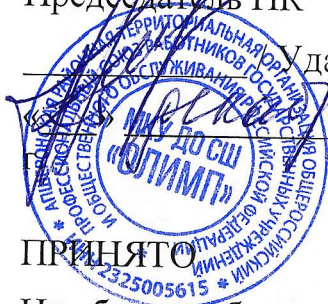 Председатель ПК
Уда
АПШЕРОНСКАЯ РАЙОННАЯ ТЕРРИТОРИАЛЬНАЯ ОРГАНИЗАЦИЯ ОБЩЕРОССИЙСКИЙ
ПРОФЕССИОНАЛЬНЫЙ СОЮЗ РАБОТНИКОВ ГОСУДАРСТВЕННЫХ УЧРЕЖДЕНИЙ
И ОБЩЕСТВЕННОГО ОБСЛУЖИВАНИЯ РОССИЙСКОЙ ФЕДЕРАЦИИ
МКУ ДО СШ
«ОЛИМП»
2325005615
ПРИНЯТО